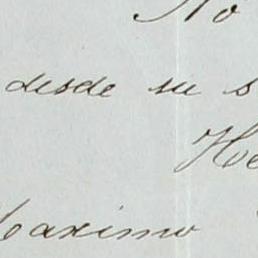 No
desde su s
He
Maximo